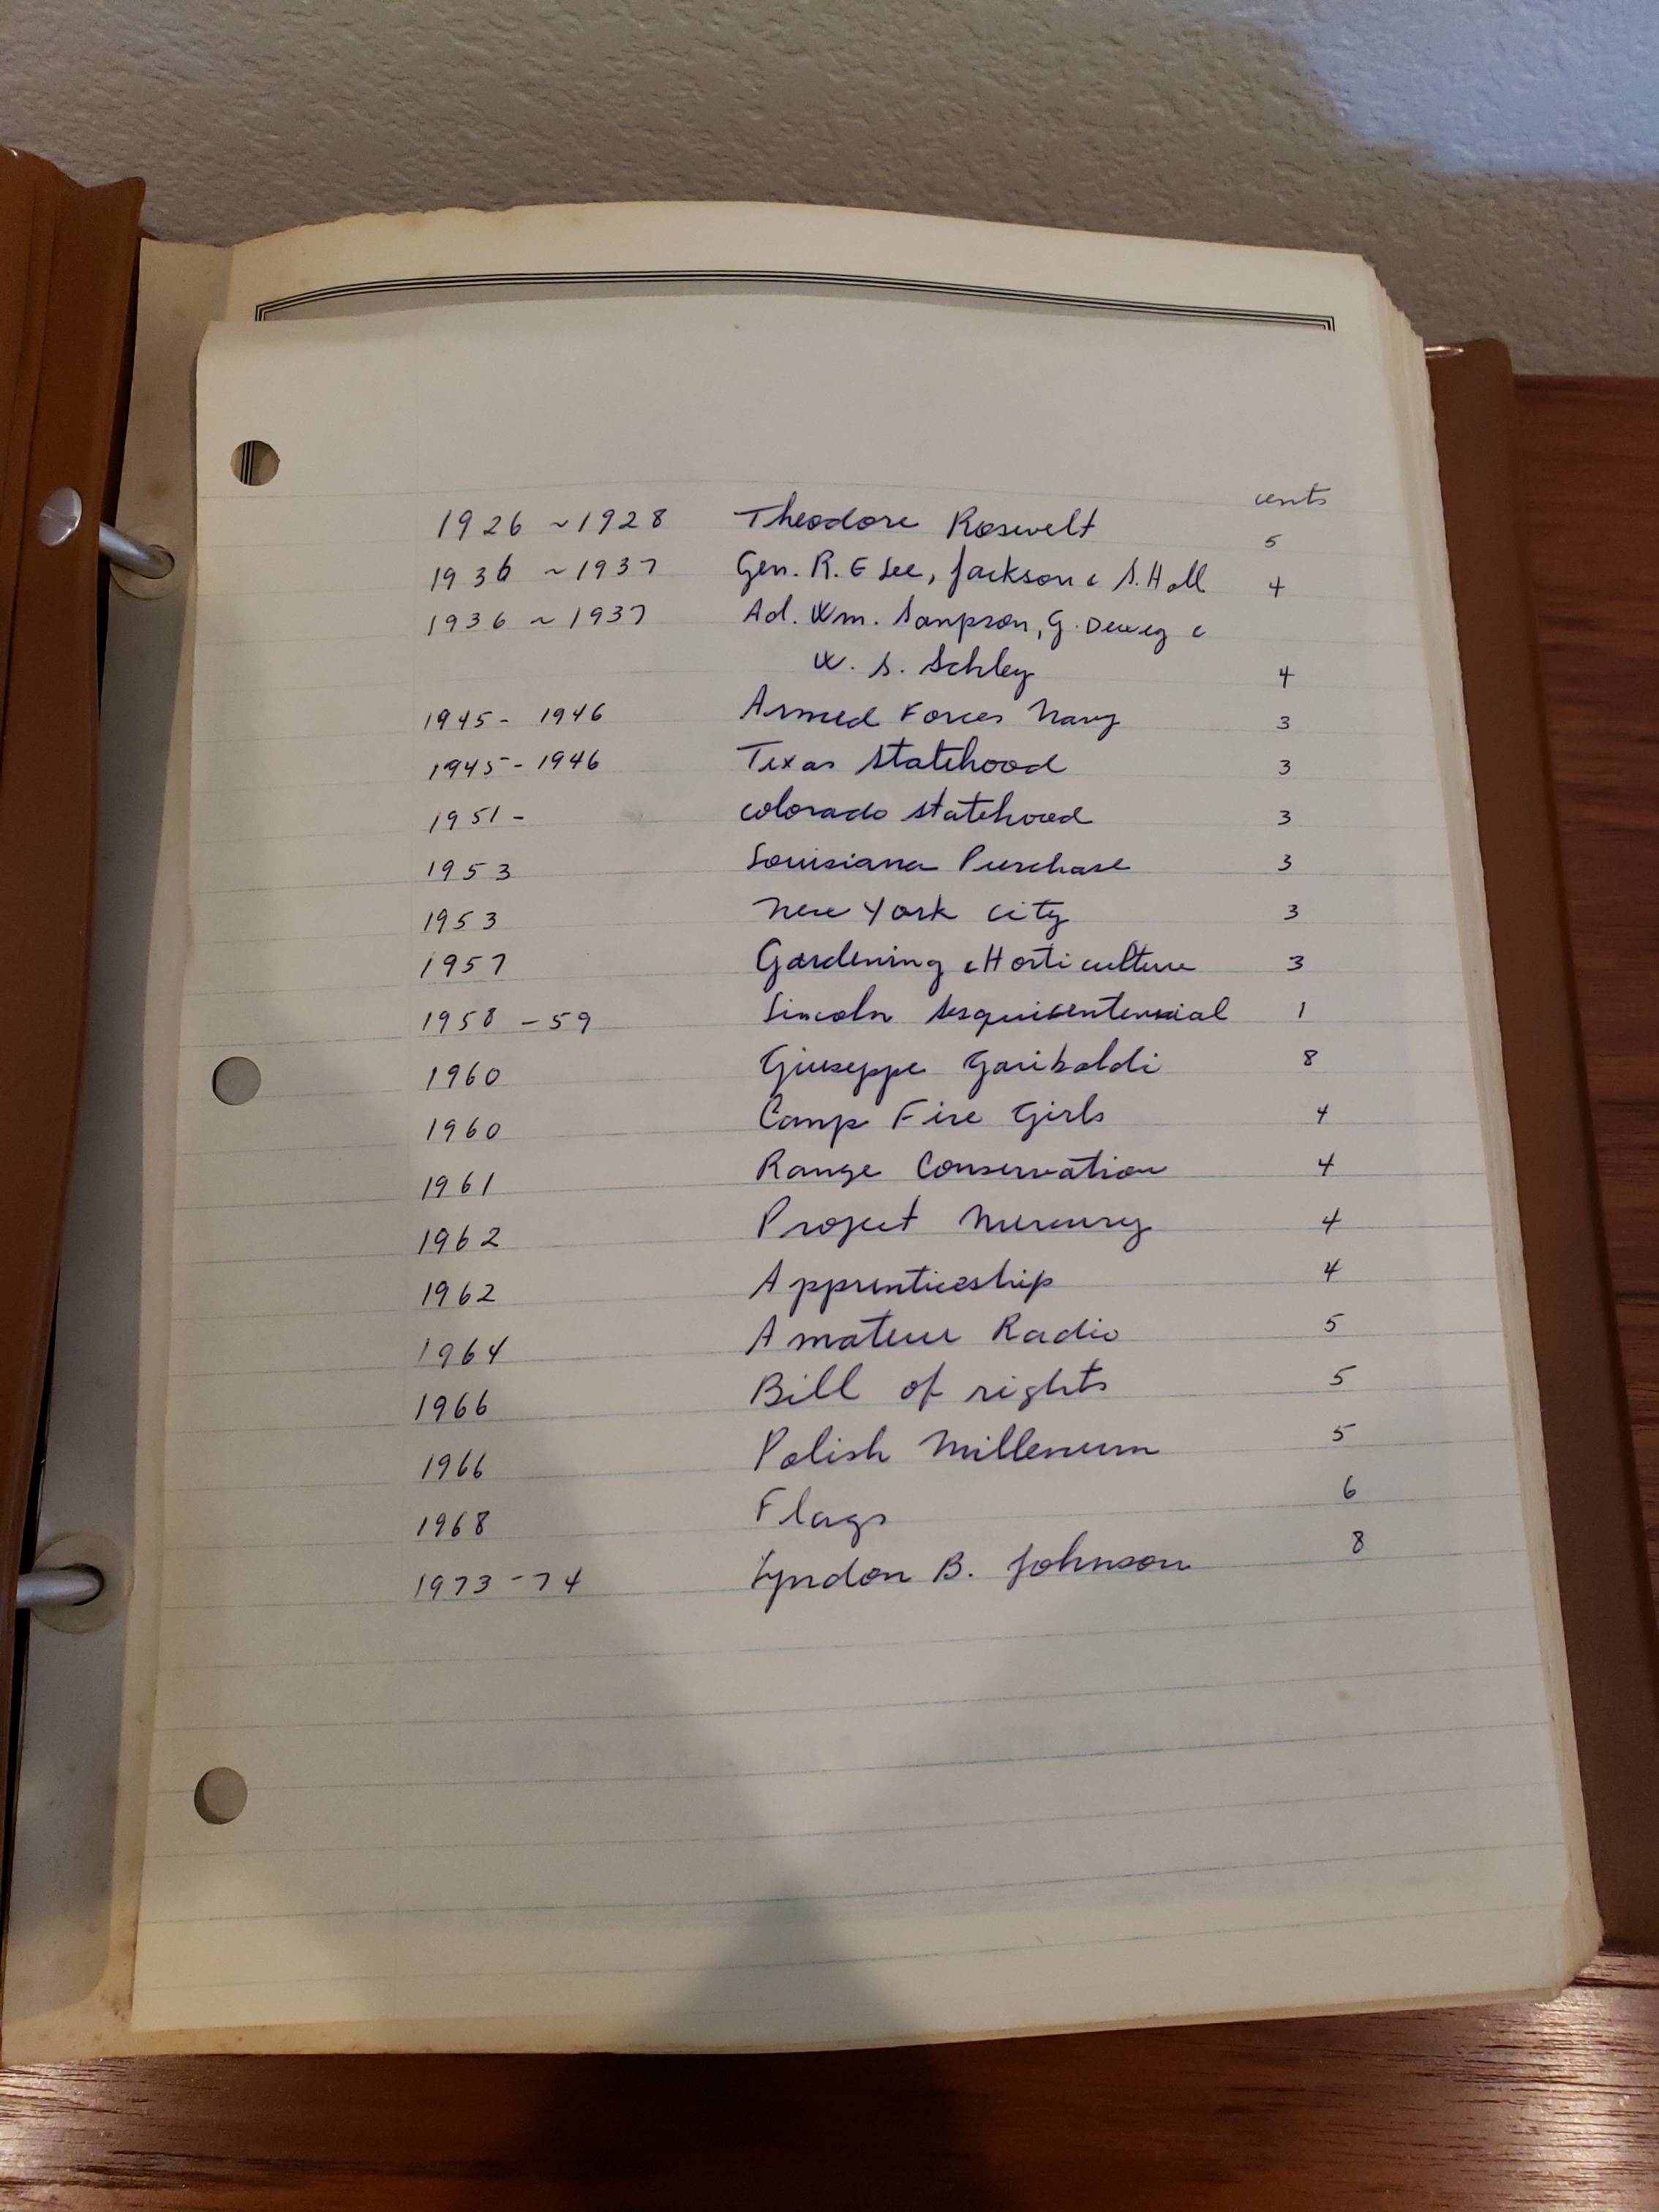 cents
1926 ~1928 Theodore Rosevelt 5
1936 ~1937 Gen. R. E Lee, Jackson & S. Hall 4
1936 ~ 1937 Ad. Wm. Sampson, G. Dewey &
W. S. Schley 4
1945- 1946 Armed Forces Navy 3
1945- 1946 Texas Statehood 3
1951 - Colorado Statehood 3
1953 Louisiana Purchase 3
1953 New York City 3
1957 Gardening & Horticulture 3
1958 -59 Lincoln Sesquicentennial 1
1960 Giuseppe Garibaldi 8
1960 Camp Fire Girls 4
1961 Range Conservation 4
1962 Project Mercury 4
1962 Apprenticeship 4
1964 Amateur Radio 5
1966 Bill of rights 5
1966 Polish Millenum 5
1968 Flags 6
1973 -74 Lyndon B. Johnson 8